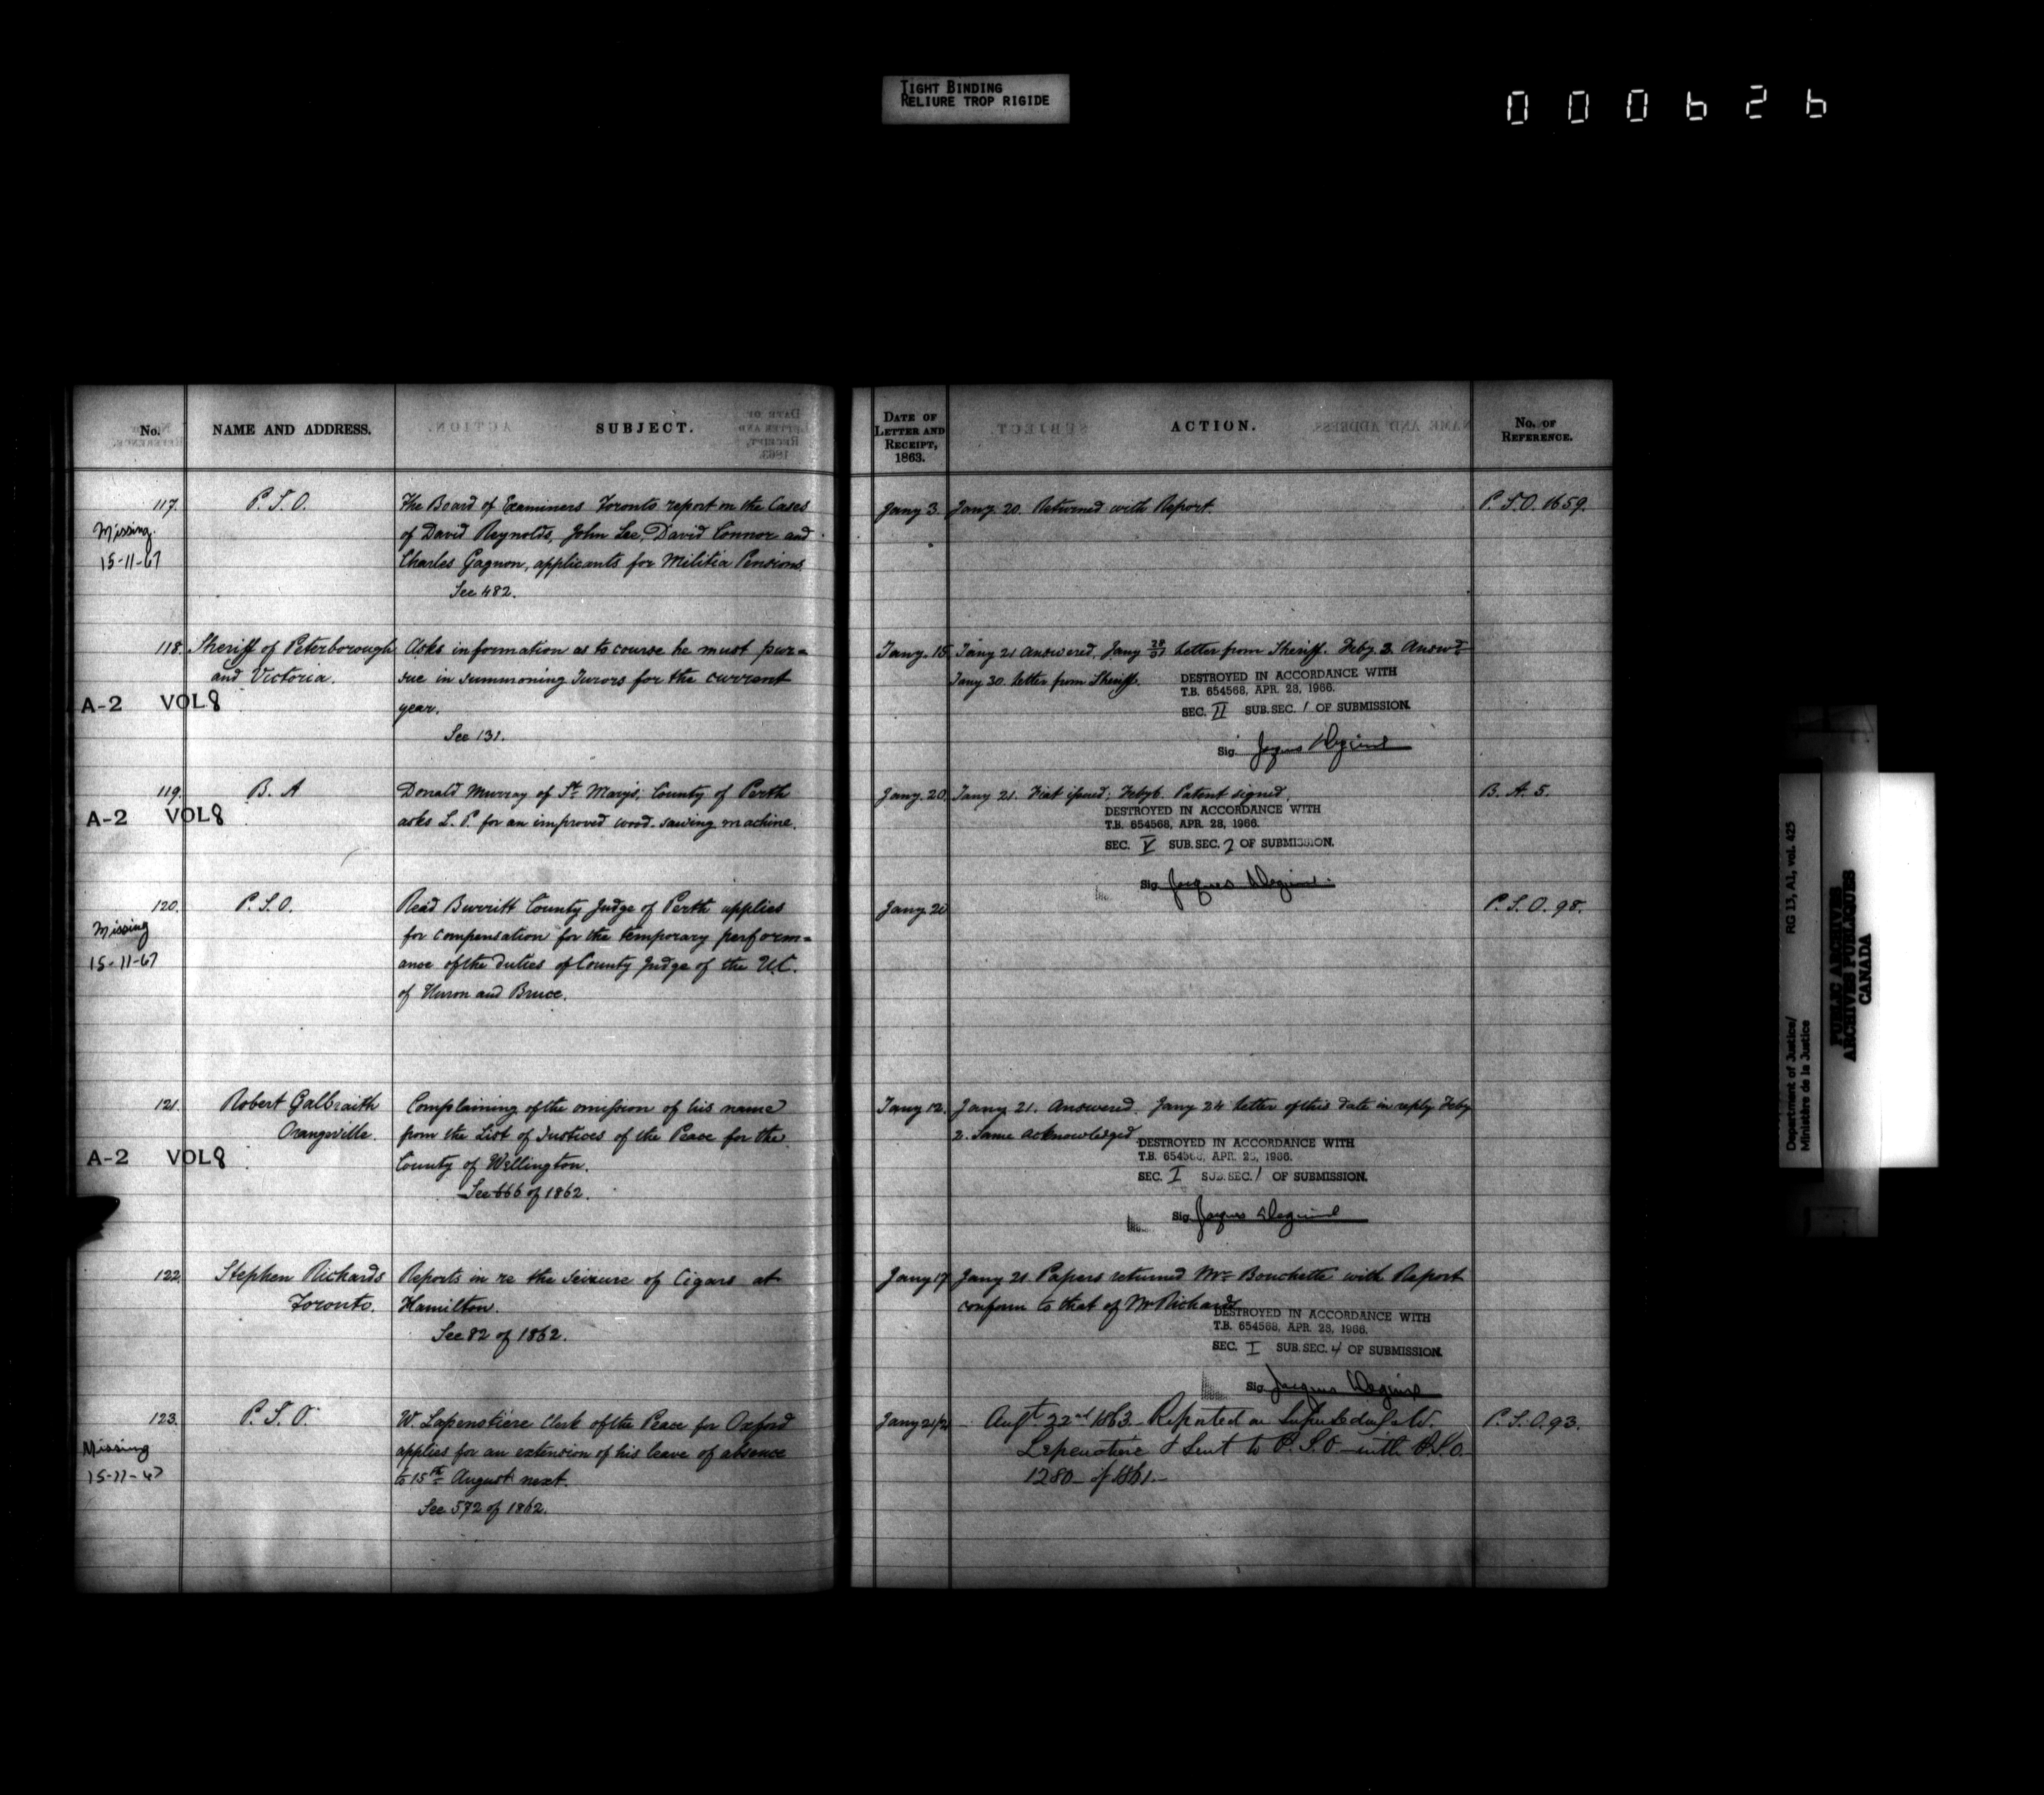 TIGHT BINDING
RELIURE TROP RIGIDE
000626
No.
NAME AND ADDRESS.
SUBJECT.
117. P.S.O. The Board of Examiners Toronto report on the Cases
Missing. of David Reynolds, John Lee, David Connor and
15-11-67 Charles Gagnon, applicants for Militia Pensions.
See 482.
118. Sheriff of Peterborough Asks information as to course he must pur=
and Victoria. sue in summoning Jurors for the current
A-2 VOL 8 year.
See 131.
119. B. A Donald Murray of St. Marys, County of Perth
A-2 VOL 8 asks L. P. for an improved wood-sawing machine.
120. P.S.O. Read Burritt County Judge of Perth applies
Missing for compensation for the temporary perform=
15-11-67 ance of the duties of County Judge of the U.C.
of Huron and Bruce.
121. Robert Galbraith Complaining of the omission of his name
Orangeville. from the List of Justices of the Peace for the
A-2 VOL 8 County of Wellington.
See 666 of 1862.
122. Stephen Richards Reports in re the seizure of Cigars at
Toronto. Hamilton.
See 82 of 1862.
123. P.S.O. W. Lapenotiere Clerk of the Peace for Oxford
Missing applies for an extension of his leave of absence
15-11-67 to 15th August next.
See 572 of 1862.
DATE OF
LETTER AND
RECEIPT,
1863.
ACTION.
No. OF
REFERENCE.
Jany 3. Jany 20. Returned with Report. P.S.O. 1659.
Jany. 15 Jany 21 answered. Jany 28/31 letter from Sheriff. Feby 3. Answd
Jany 30. letter from Sheriff.
DESTROYED IN ACCORDANCE WITH
T.B. 654568, APR. 28, 1966.
SEC. II SUB.SEC. 1 OF SUBMISSION.
Sig.
Jany. 20 Jany 21. Fiat issued. Feby 6. Patent signed. B. A. 5.
DESTROYED IN ACCORDANCE WITH
T.B. 654568, APR. 28, 1966.
SEC. V SUB.SEC. 2 OF SUBMISSION.
Sig. Jacques
Jany 20 P.S.O. 98.
Jany 12. Jany 21. Answered. Jany 24 letter of this date in reply Feby
2. Same acknowledged.
DESTROYED IN ACCORDANCE WITH
T.B. 654568, APR. 28, 1966.
SEC. I SUB.SEC. 1 OF SUBMISSION.
Sig. Jacques
Jany 17 Jany 21 Papers returned Mr. Bouchette with Report
conform to that of Mr Richards
DESTROYED IN ACCORDANCE WITH
T.B. 654568, APR. 28, 1966.
SEC. I SUB.SEC. 4 OF SUBMISSION.
Sig. Jacques
Jany 21/2 Augt 22nd 1863 - Reported on Supersedeas W. P.S.O. 93.
Lapenotiere & Sent to P.S.O. with P.S.O.
1280 - of 1861. -
Department of Justice/ RG 13, A1, vol. 425
Ministère de la Justice
PUBLIC ARCHIVES
ARCHIVES PUBLIQUES
CANADA